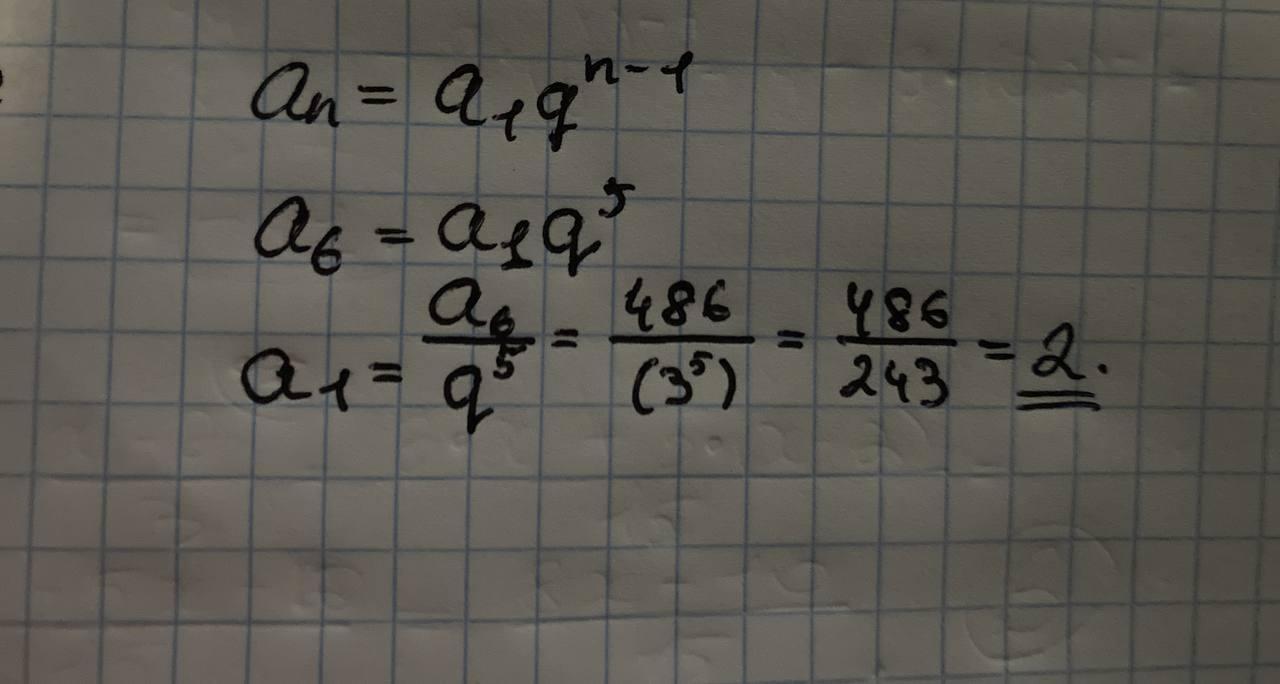 aₙ = a₁qⁿ⁻¹
a₆ = a₁q⁵
a₁ = a₆/q⁵ = 486/(3⁵) = 486/243 = 2.